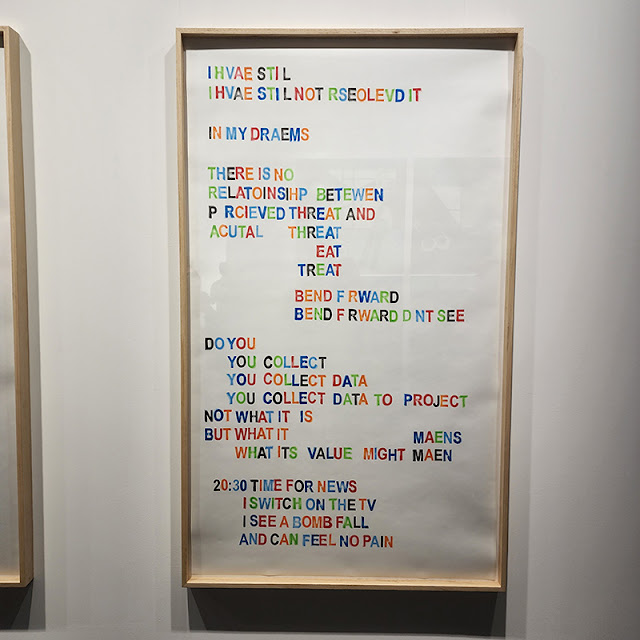 I HVAE STI L
I HVAE STI L NOT RSEOLEVD IT
IN MY DRAEMS
THERE IS NO
RELATOINSIHP BETEWEN
P RCIEVED THREAT AND
ACUTAL THREAT
EAT
TREAT
BEND F RWARD
BEND F RWARD D NT SEE
DO YOU
YOU COLLECT
YOU COLLECT DATA
YOU COLLECT DATA TO PROJECT
NOT WHAT IT IS
BUT WHAT IT MAENS
WHAT ITS VALUE MIGHT MAEN
20:30 TIME FOR NEWS
I SWITCH ON THE TV
I SEE A BOMB FALL
AND CAN FEEL NO PAIN